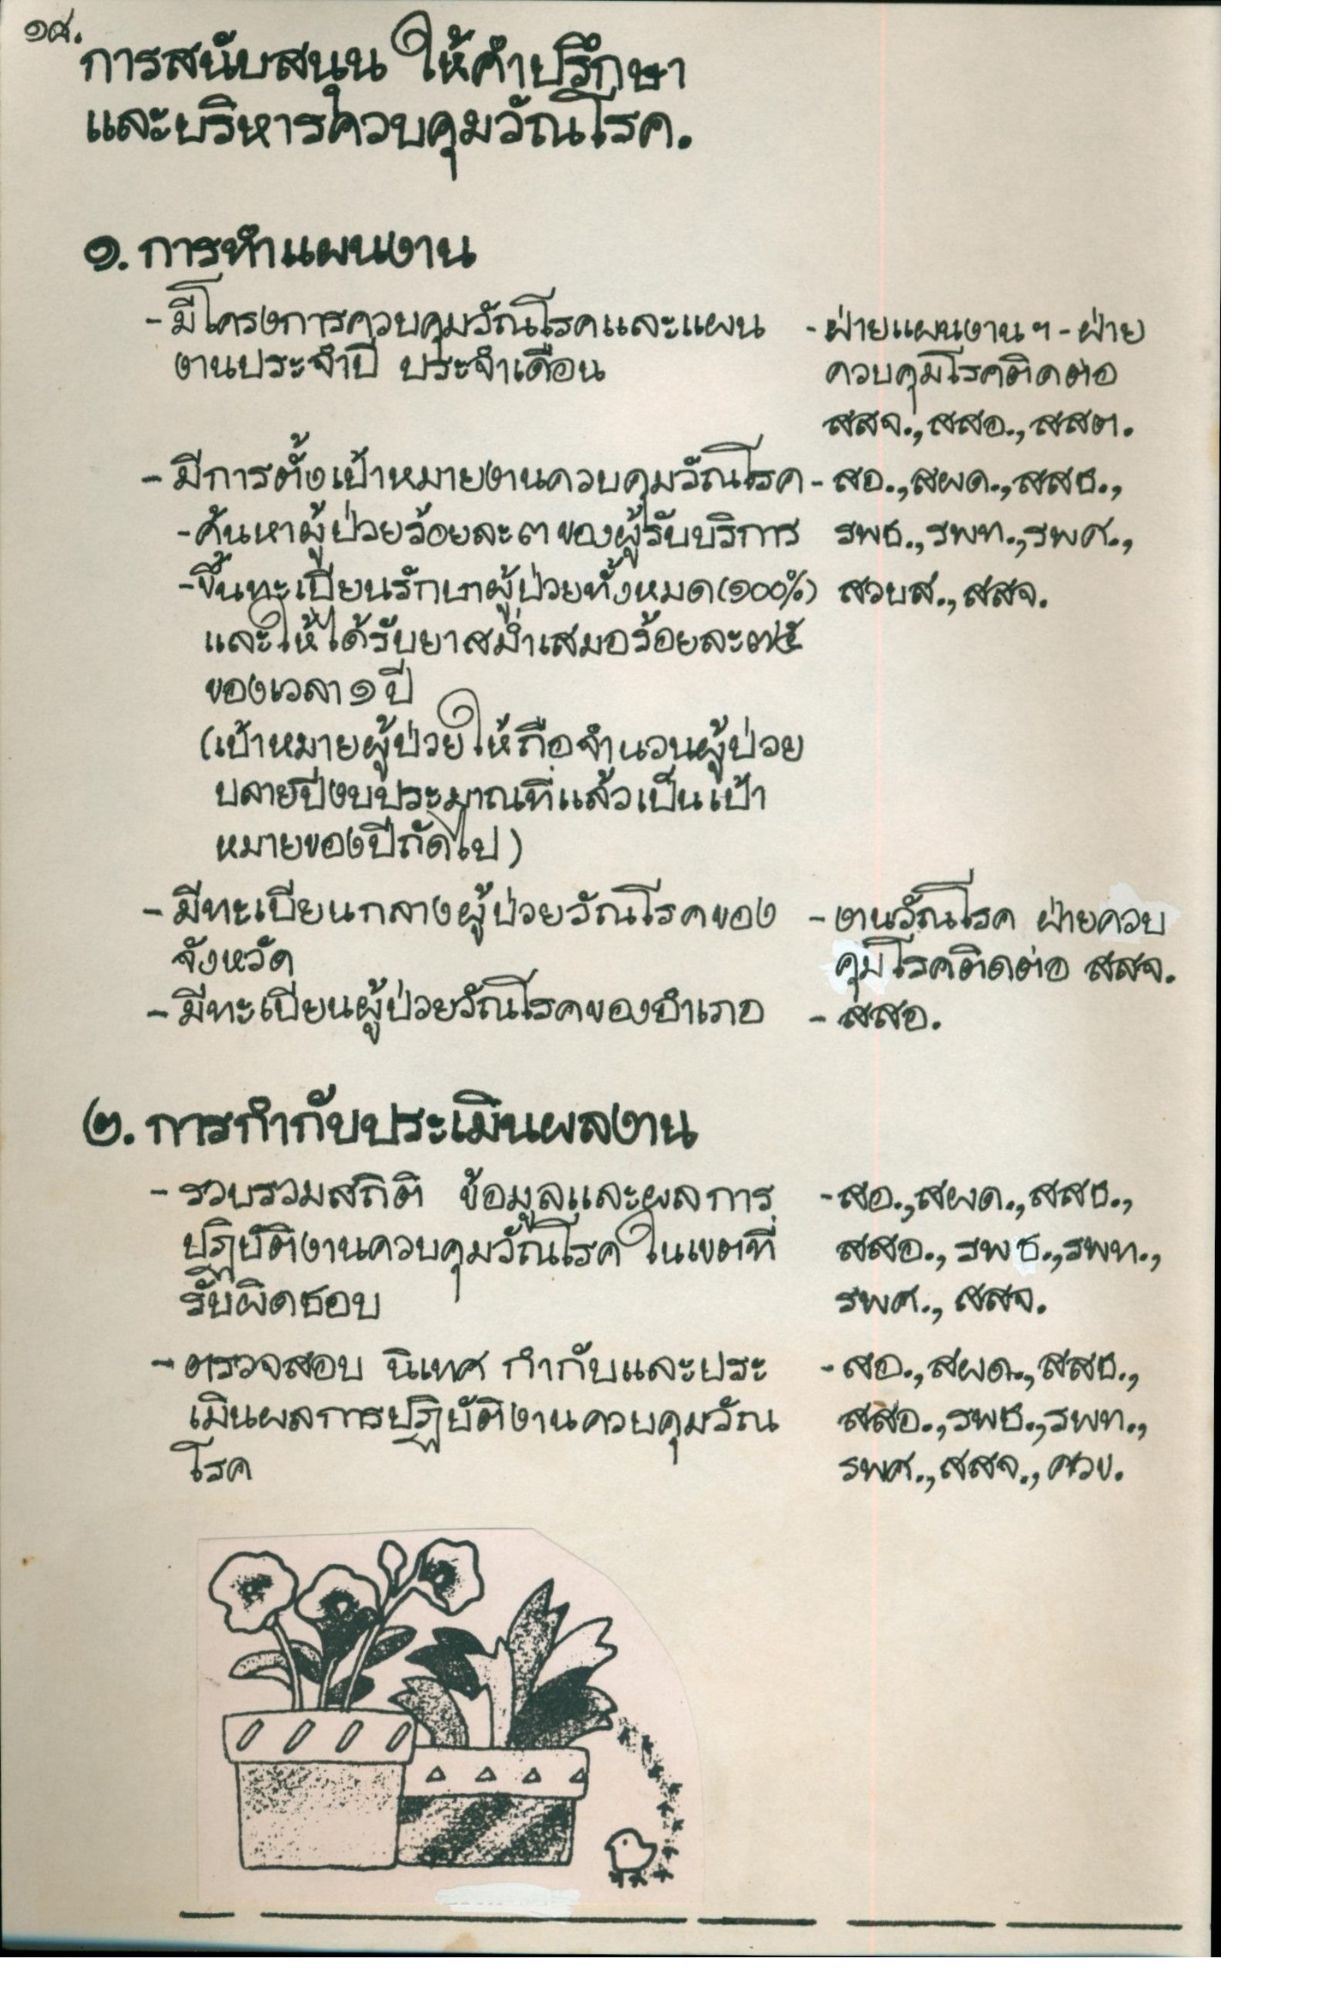 ๑๘.
การสนับสนุน ให้คำปรึกษา
และบริหารควบคุมวัณโรค.
๑. การทำแผนงาน
- มีโครงการควบคุมวัณโรคและแผน - ฝ่ายแผนงานฯ - ฝ่าย
งานประจำปี ประจำเดือน ควบคุมโรคติดต่อ
สสจ., สสอ., สสต.
- มีการตั้งเป้าหมายงานควบคุมวัณโรค - สอ., สผด., สสช.,
- ค้นหาผู้ป่วยร้อยละ ๓ ของผู้รับบริการ รพช., รพท., รพศ.,
- ขึ้นทะเบียนรักษาผู้ป่วยทั้งหมด (๑๐๐%) สวบส., สสจ.
และให้ได้รับยาสม่ำเสมอร้อยละ ๗๕
ของเวลา ๑ ปี
(เป้าหมายผู้ป่วยให้ถือจำนวนผู้ป่วย
ปลายปีงบประมาณที่แล้วเป็นเป้า
หมายของปีถัดไป)
- มีทะเบียนกลางผู้ป่วยวัณโรคของ - งานวัณโรค ฝ่ายควบ
จังหวัด คุมโรคติดต่อ สสจ.
- มีทะเบียนผู้ป่วยวัณโรคของอำเภอ - สสอ.
๒. การกำกับประเมินผลงาน
- รวบรวมสถิติ ข้อมูลและผลการ - สอ., สผด., สสช.,
ปฏิบัติงานควบคุมวัณโรคในเขตที่ สสอ., รพช., รพท.,
รับผิดชอบ รพศ., สสจ.
- ตรวจสอบ นิเทศ กำกับและประ - สอ., สผด., สสช.,
เมินผลการปฏิบัติงานควบคุมวัณ สสอ., รพช., รพท.,
โรค รพศ., สสจ., ศวข.